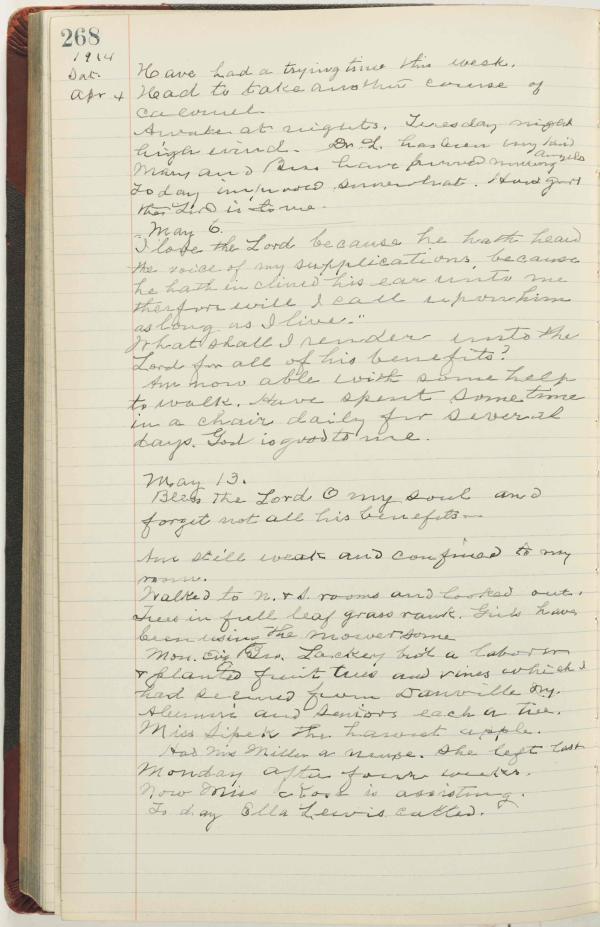 268
1914
Sat.
Apr 4
Have had a trying time this week.
Had to take another course of
calomel.
Awake at nights. Tuesday night
high wind. Dr. L. has been very kind
Mary and Bess have proved ministering angels
Today improved somewhat. How good
the Lord is to me.
May 6.
I love the Lord because he hath heard
the voice of my supplications, because
he hath inclined his ear unto me
therefore will I call upon him
as long as I live."
What shall I render unto the
Lord for all of his benefits?
Am now able with some help
to walk. Have spent some time
in a chair daily for several
days. God is good to me.
May 13.
Bless the Lord O my soul and
forget not all his benefits—
Am still weak and confined to my
room.
Walked to N. & S. rooms and looked out.
Trees in full leaf grass rank. Girls have
been using the mower some
Mon. Bro. Lackey a laborer
& planted fruit trees and vines which I
had secured from Danville
Alumni and Seniors each a tree.
Miss the harvest apple.
Had Mis Miller a nurse. She left last
Monday after four weeks.
Now Miss is assisting.
To day Ella Lewis called.